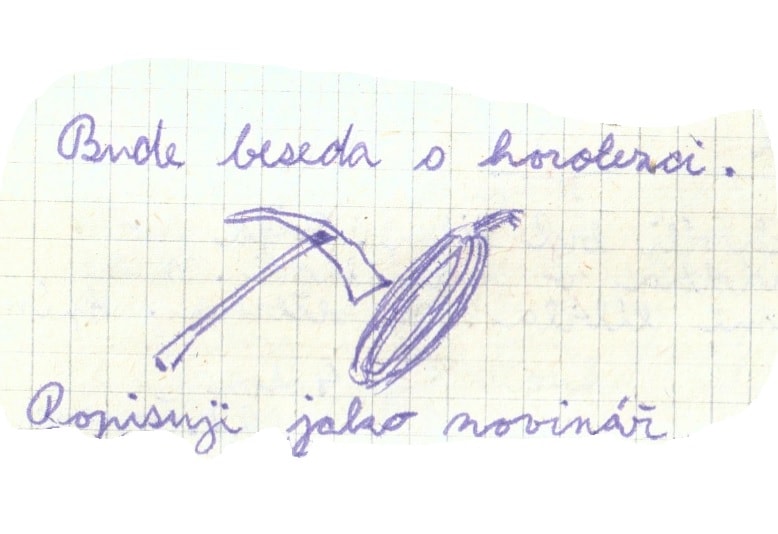 Bude beseda o horolezci.
Popisuji jako novinář